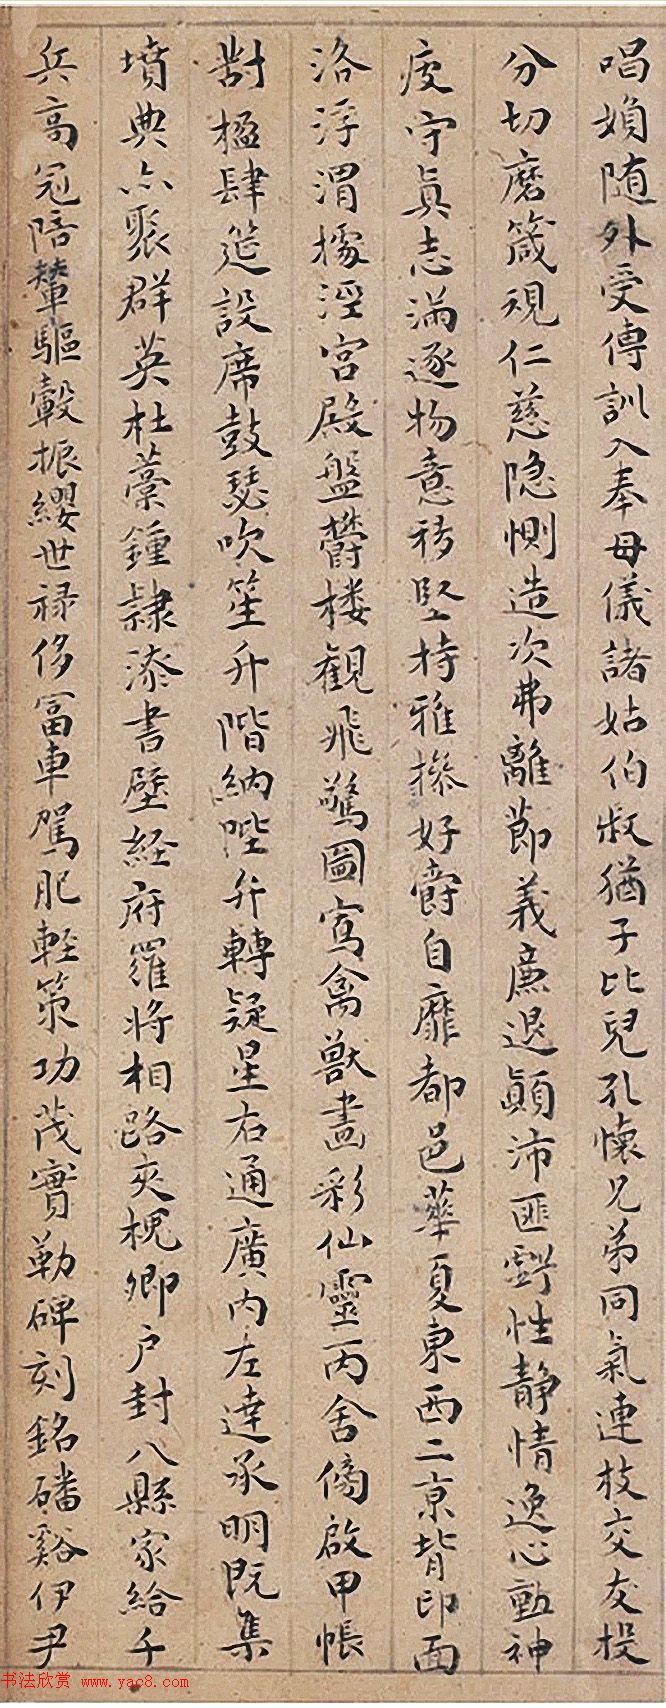 唱婦随外受傅訓入奉母儀諸姑伯叔猶子比兒孔懷兄弟同氣連枝交友投
分切磨箴規仁慈隐惻造次弗離節義廉退顛沛匪虧性静情逸心動神
疲守真志滿逐物意移堅持雅操好爵自靡都邑華夏東西二京背邙面
洛浮渭據涇宮殿盤鬱楼觀飛驚圖寫禽獸畫彩仙靈丙舍傍啟甲帳
對楹肆筵設席鼓瑟吹笙升階納陛弁轉疑星右通廣内左達承明既集
墳典亦聚群英杜藁鍾隸漆書壁経府羅将相路夾槐卿户封八縣家給千
兵高冠陪輦驅轂振纓世禄侈富車駕肥輕策功茂實勒碑刻銘磻谿伊尹
书法欣赏 www.yac8.com